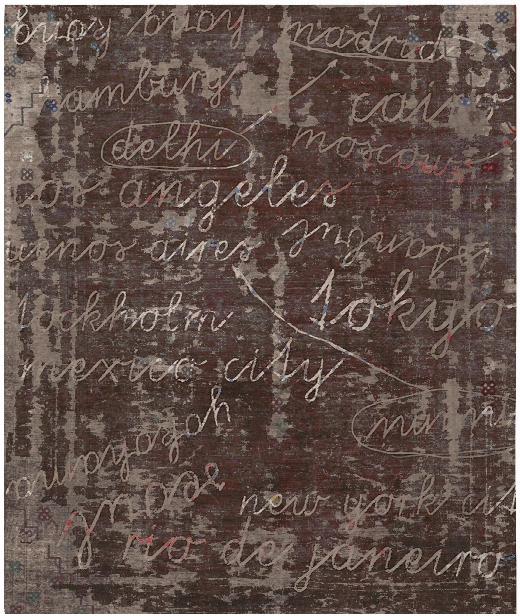 madrid
amburg cairo
delhi moscow
os angeles
uenos aires istanbul
tockholm tokyo
mexico city
new york cit
rio de janeiro